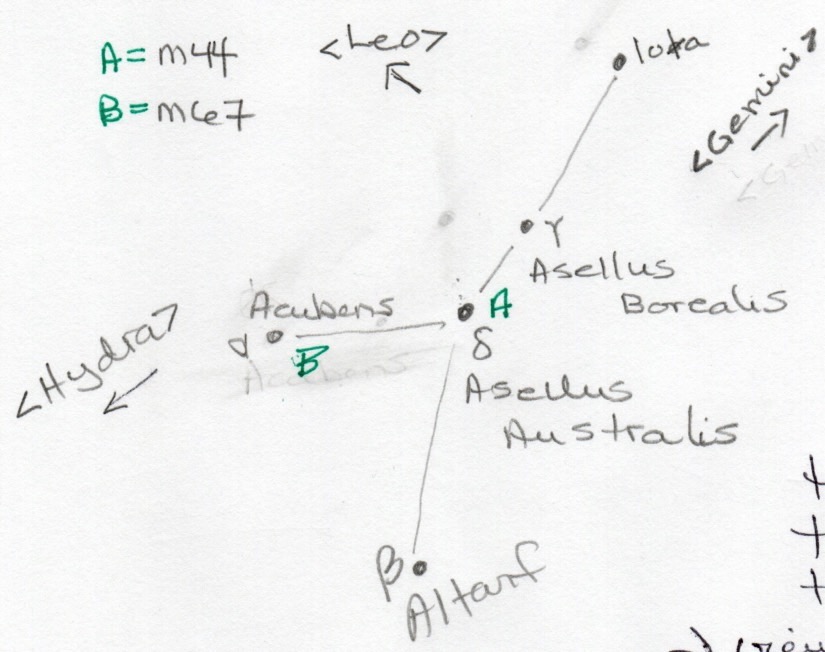 A = M44
B = M67
<Leo>
Iota
<Gemini>
γ
Asellus
Borealis
A
δ
Asellus
Australis
Acubens
α
B
<Hydra>
β
Altarf
+
+
+